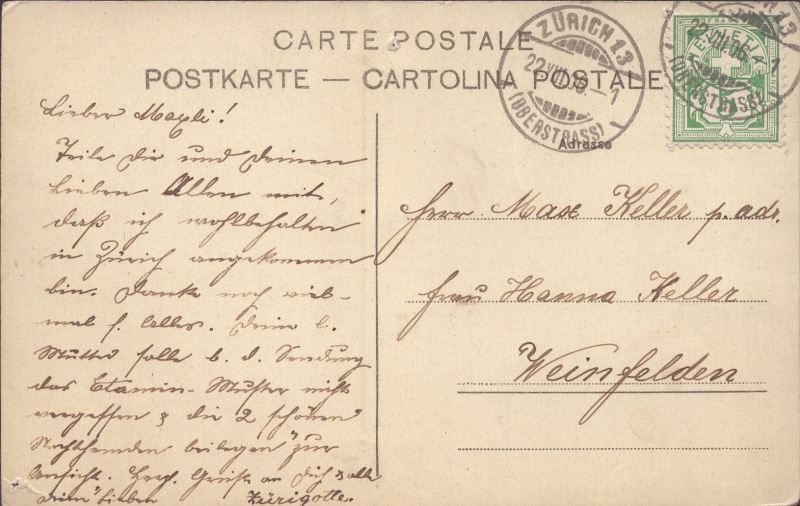 CARTE POSTALE
POSTKARTE — CARTOLINA POSTALE
ZÜRICH 13
22.VIII.06.–1
(OBERSTRASS)
HELVETIA
Adresse
Lieber Maxli!
Teile Dir und Deinen
Lieben Allen mit,
daß ich wohlbehalten
in Zürich angekommen
bin. Danke noch viel-
mal f. Alles. Deine l.
Mutter solle b. d. Sendung
das Etamin-Muster nicht
vergessen & die 2 schönen
Nachthemden beilegen zur
Ansicht. Herzl. Grüße an Dich & alle
Deine Lieben Zürigotte.
Herrn Max Keller p. adr.
Frau Hanna Keller
Weinfelden